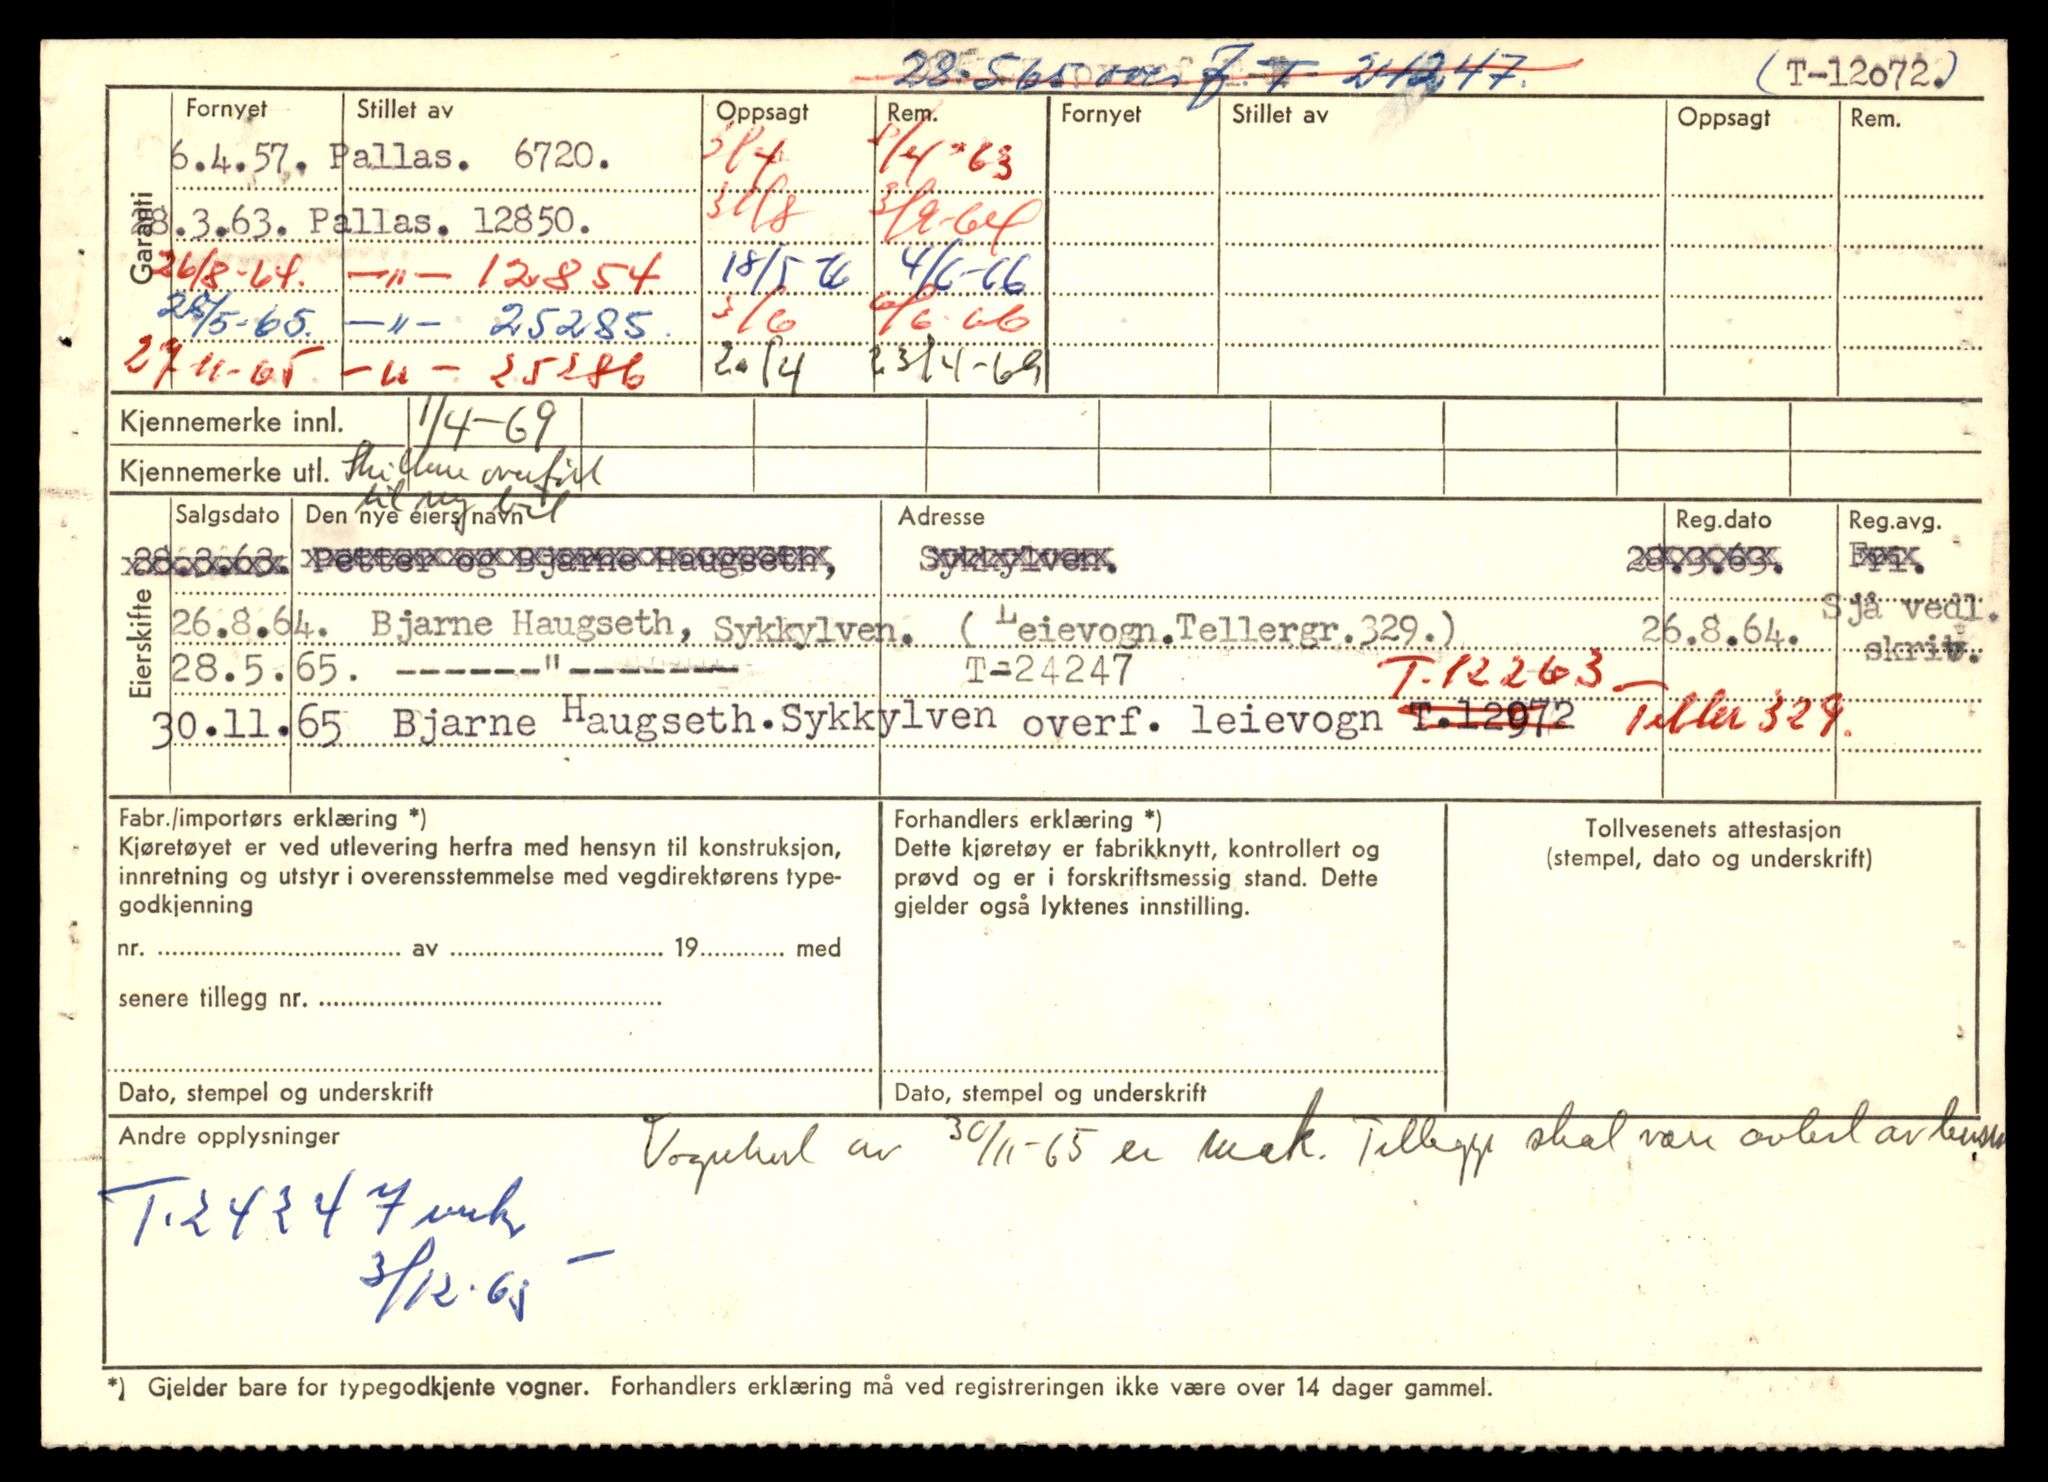 28.5 65 T 24247. (T-12072.)
Garanti
Fornyet Stillet av Oppsagt Rem. Fornyet Stillet av Oppsagt Rem.
6.4.57. Pallas. 6720. 3/4 8/4-63
28.3.63. Pallas. 12850. 31/8 3/9-64
26/8-64. -"- 12854. 18/5-66 4/6-66
28/5-65. -"- 25285. 3/6 6/6-66
29/11-65 -"- 25286 20/4 23/4-69
Kjennemerke innl. 1/4-69
Kjennemerke utl. Skiltene overført
til ny bil
Eierskifte
Salgsdato Den nye eiers navn Adresse Reg.dato Reg.avg.
28.3.63. Petter og Bjarne Haugseth, Sykkylven. 28.3.63. Fri.
26.8.64. Bjarne Haugseth, Sykkylven. (Leievogn.Tellergr.329.) 26.8.64. Sjå vedl.
skriv.
28.5.65. ------"------- T-24247 T.12263
30.11.65 Bjarne Haugseth.Sykkylven overf. leievogn T.12072 Teller 329.
Fabr./importørs erklæring *)
Kjøretøyet er ved utlevering herfra med hensyn til konstruksjon,
innretning og utstyr i overensstemmelse med vegdirektørens type-
godkjenning
nr. .......... av .......... 19.......... med
senere tillegg nr. ..........
Dato, stempel og underskrift
Forhandlers erklæring *)
Dette kjøretøy er fabrikknytt, kontrollert og
prøvd og er i forskriftsmessig stand. Dette
gjelder også lyktenes innstilling.
Dato, stempel og underskrift
Tollvesenets attestasjon
(stempel, dato og underskrift)
Andre opplysninger
Vognkort av 30/11-65 er mak. Tillegg skal være avløst av
T.24247 mak
3/12-65
*) Gjelder bare for typegodkjente vogner. Forhandlers erklæring må ved registreringen ikke være over 14 dager gammel.